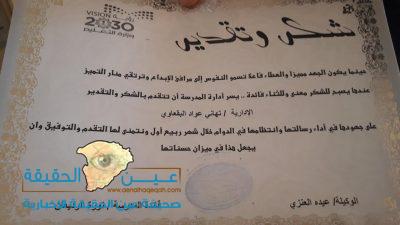 رؤية VISION
2030
وزارة التعليم
شكر وتقدير
حينما يكون الجهد مميزا والعطاء فاعلا تسمو النفوس إلى مرافئ الإبداع وترتقي منار التميز
عندها يصبح للشكر معنى وللثناء فائدة .. يسر ادارة المدرسة أن تتقدم بالشكر والتقدير
الإدارية / تهاني عواد البقعاوي
على جهودها في أداء رسالتها وانتظامها في الدوام خلال شهر ربيع أول ونتمنى لها التقدم والتوفيق وأن
يجعل هذا في ميزان حسناتها
عين الحقيقة
صحيفة عين الحقيقة الإخبارية
الوكيلة / عبده العنزي
قائدة المدرسة / نورة